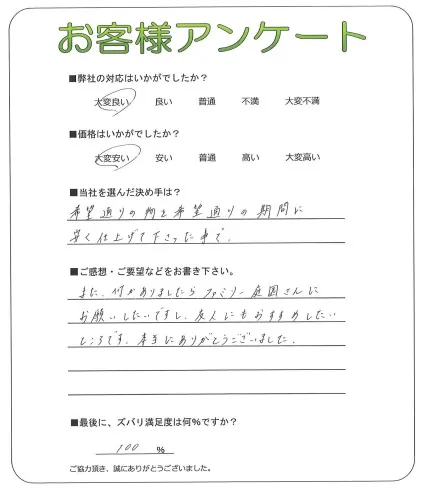 お客様アンケート
■弊社の対応はいかがでしたか？
大変良い 良い 普通 不満 大変不満
■価格はいかがでしたか？
大変安い 安い 普通 高い 大変高い
■当社を選んだ決め手は？
希望通りの物を希望通りの期間に
安く仕上げて下さった事で。
■ご感想・ご要望などをお書き下さい。
また、何かありましたらファミリー庭園さんに
お願いしたいですし、友人にもおすすめしたい
ところです。本当にありがとうございました。
■最後に、ズバリ満足度は何％ですか？
100 ％
ご協力頂き、誠にありがとうございました。